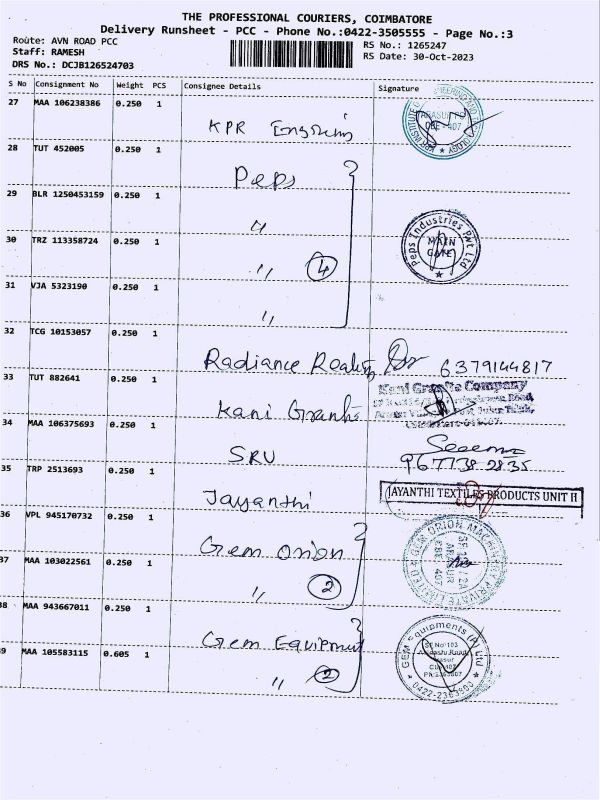 THE PROFESSIONAL COURIERS, COIMBATORE
Delivery Runsheet - PCC - Phone No.:0422-3505555 - Page No.:3
Route: AVN ROAD PCC
RS No.: 1265247
Staff: RAMESH
RS Date: 30-Oct-2023
DRS No.: DCJB126524703
S No Consignment No Weight PCS Consignee Details Signature
27 MAA 106238386 0.250 1
KPR
28 TUT 452005 0.250 1
Peps
29 BLR 1250453159 0.250 1
"
Peps Industries Pvt Ltd
MAIN GATE
30 TRZ 113358724 0.250 1
" 4
31 VJA 5323190 0.250 1
"
32 TCG 10153057 0.250 1
Radiance Realty 6379144817
33 TUT 882641 0.250 1
Kani Granite Company
Kani Granite
34 MAA 106375693 0.250 1
SRU
35 TRP 2513693 0.250 1
JAYANTHI TEXTILES PRODUCTS UNIT II
Jayanthi
36 VPL 945170732 0.250 1
Gem Orion
GEM ORION PRIVATE LIMITED
37 MAA 103022561 0.250 1
" 2
38 MAA 943667011 0.250 1
Gem Equipment
GEM Equipments (P) Ltd
39 MAA 105583115 0.605 1
" 2